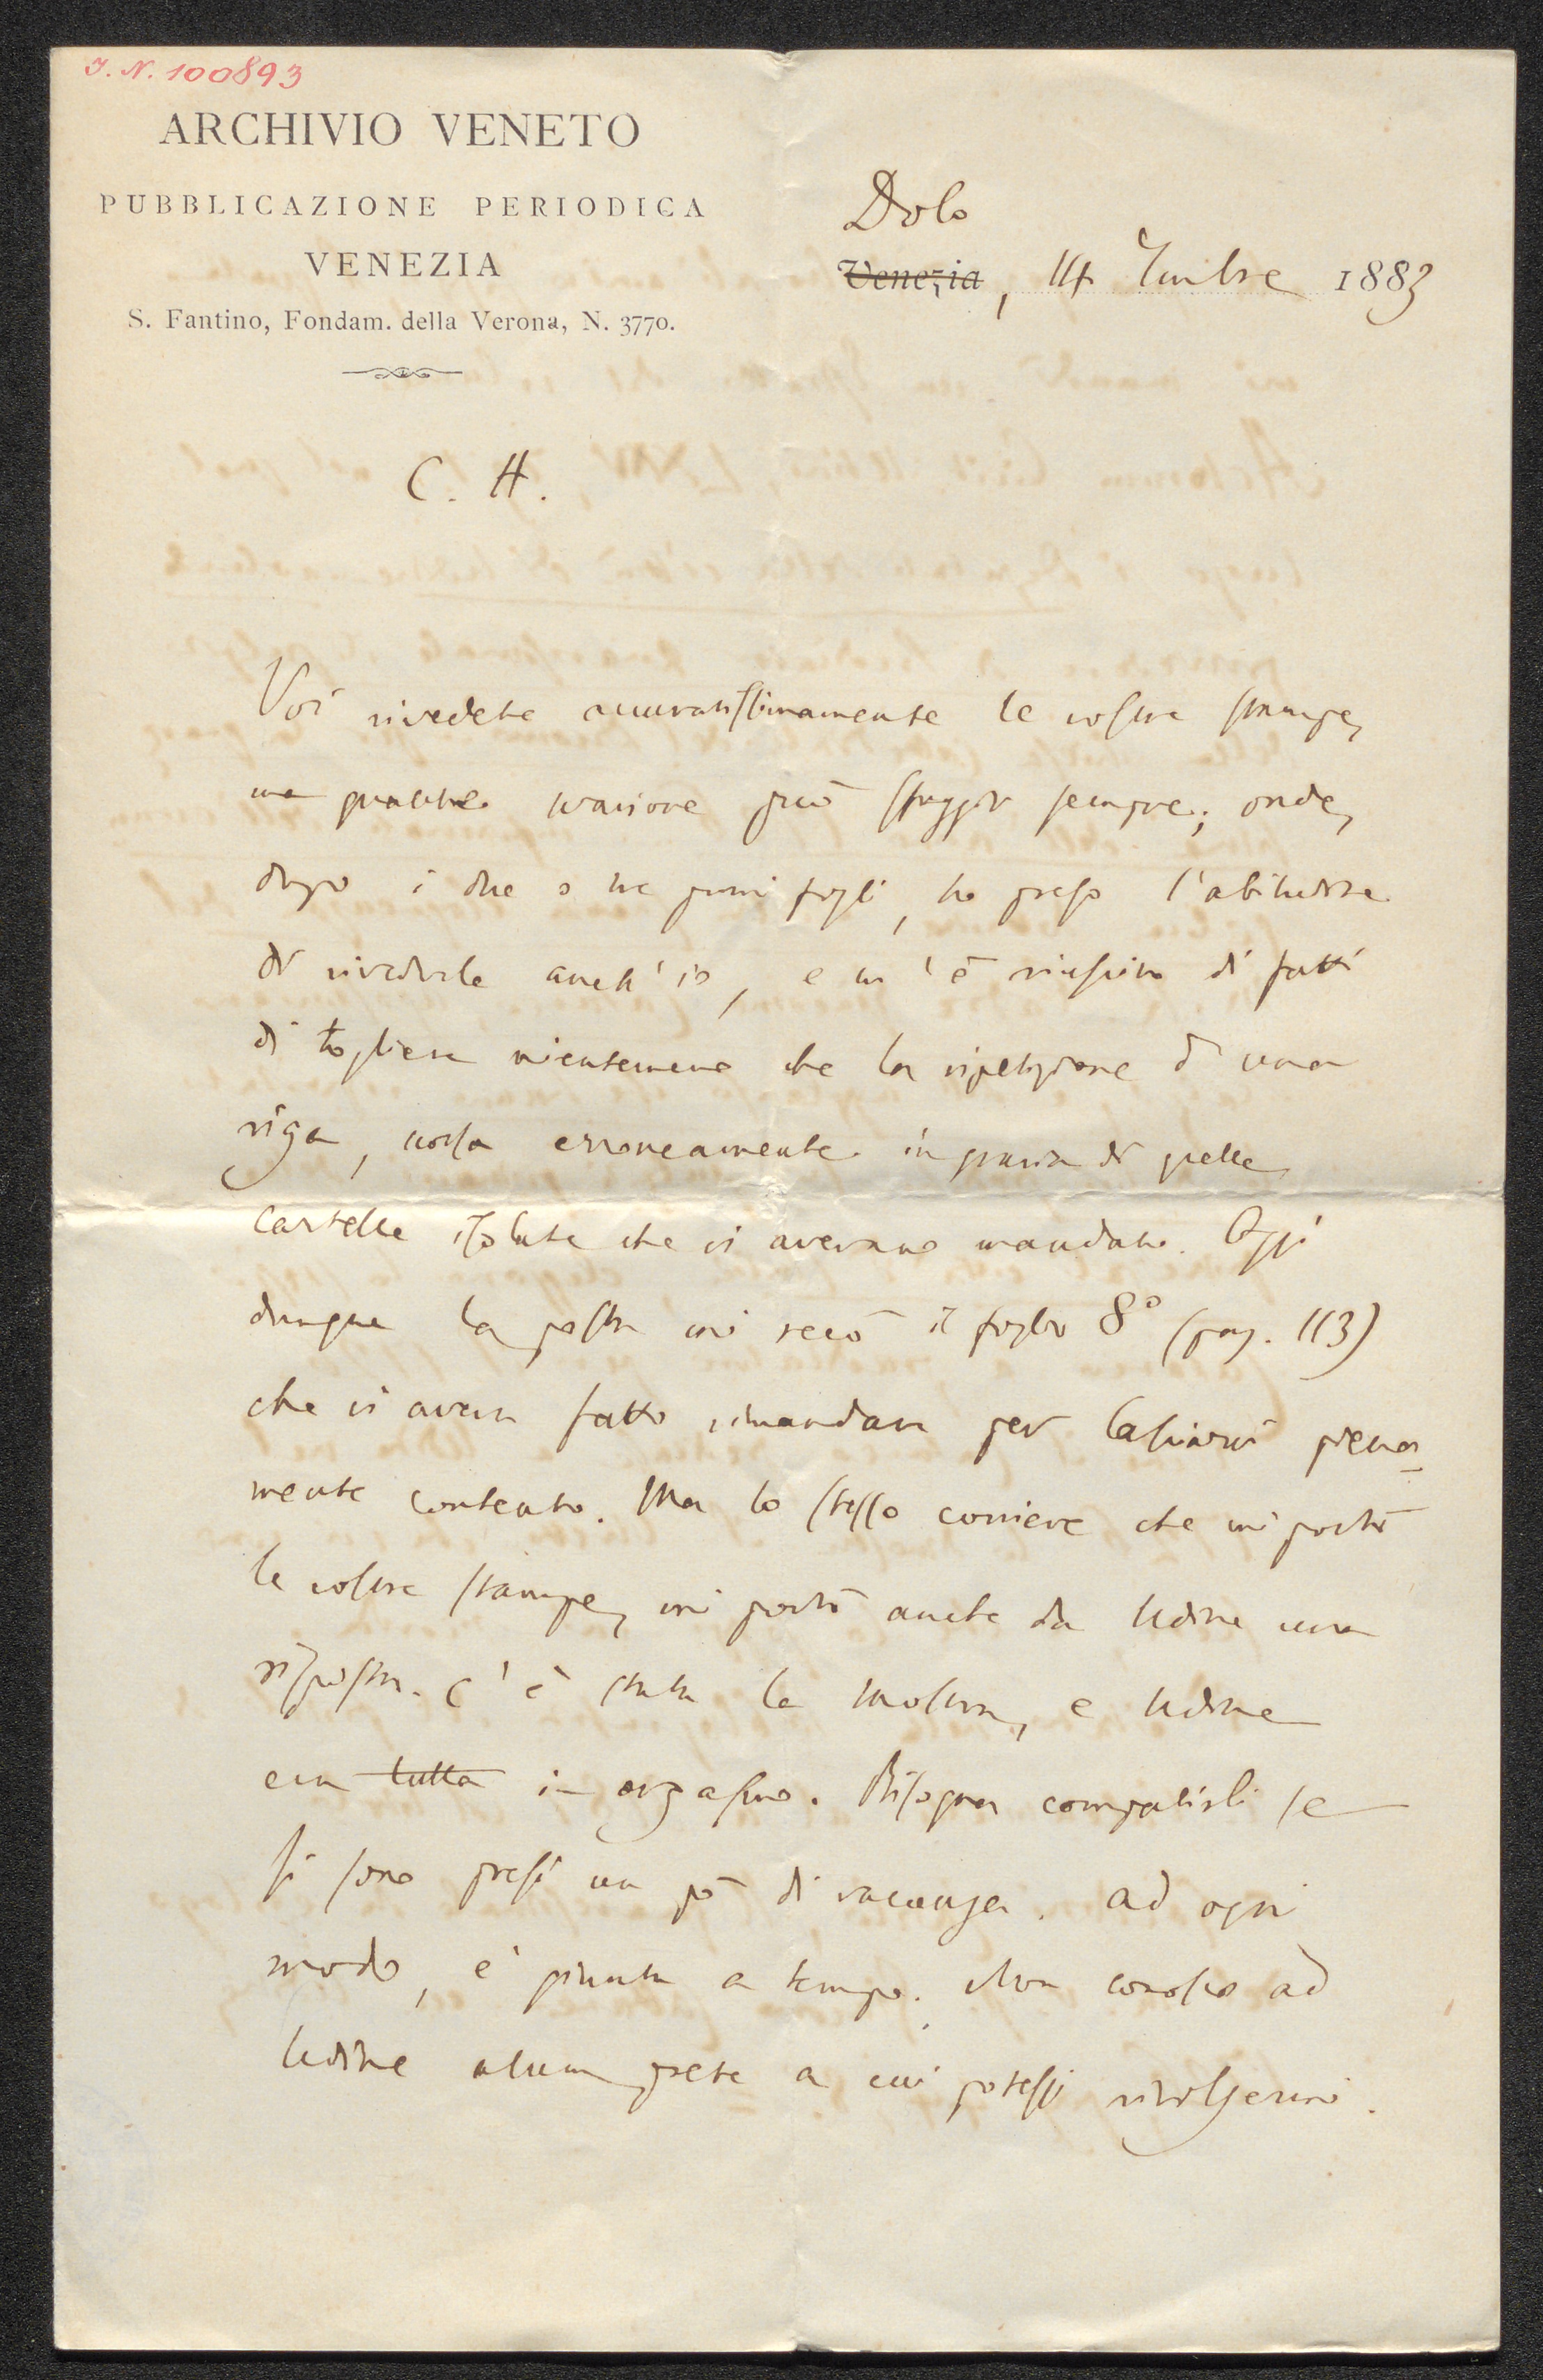 J. N. 100893
ARCHIVIO VENETO
PUBBLICAZIONE PERIODICA
VENEZIA
S. Fantino, Fondam. della Verona, N. 3770.
Dolo
Venezia, 14 7mbre 1883
C. H.
Voi rivedete accuratissimamente le vostre stampe,
ma qualche scorsione può sfuggir sempre; onde,
dopo i due o tre primi fogli, ho preso l'abitudine
di rivederle anch'io, e m'è riuscito di fatti
di togliere nientemeno che la ripetizione di una
riga, corsa erroneamente in grazia di quelle
cartelle isolate che vi avevano mandato. Oggi
dunque la posta mi recò il foglio 8° (pag. 113)
che vi aveva fatto rimandare per lasciarvi piena
mente contento. Ma lo stesso corriere che mi portò
le vostre stampe, mi portò anche da Udine una
risposta. C'è stata la mostra, e Udine
era tutta in orgasmo. Bisogna compatirli se
si sono presi un pò di vacanza. Ad ogni
modo, è giunta a tempo. Non conosco ad
Udine alcun prete a cui potessi rivolgermi.